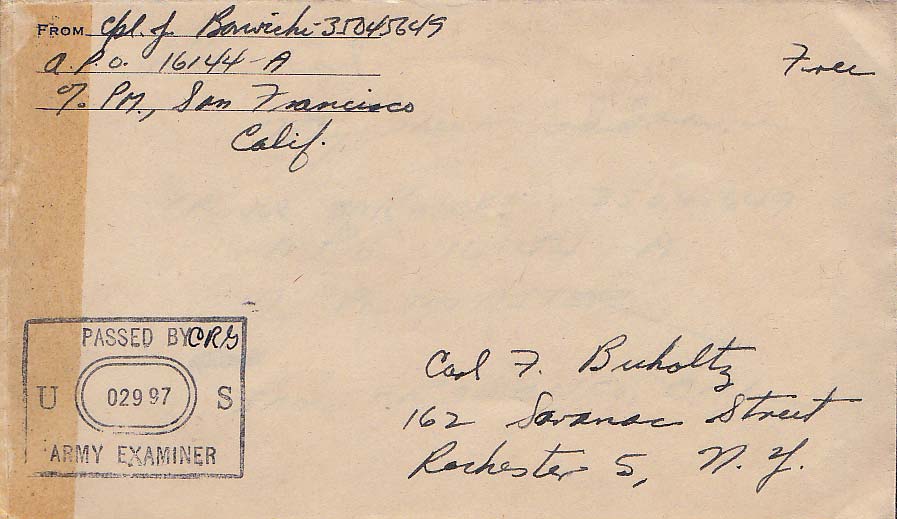 FROM Cpl. J. Barwicki-35045649
A.P.O. 16144-A
% PM., San Francisco
Calif.
Free
PASSED BY CRG
U 02997 S
ARMY EXAMINER
Carl F. Buholtz
162 Saranac Street
Rochester 5, N.Y.